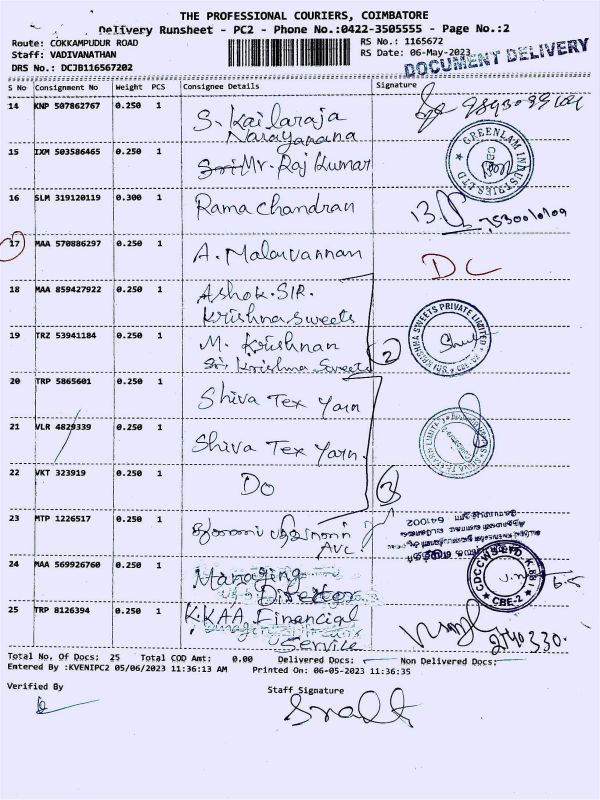 THE PROFESSIONAL COURIERS, COIMBATORE
Delivery Runsheet - PC2 - Phone No.:0422-3505555 - Page No.:2
Route: COKKAMPUDUR ROAD
RS No.: 1165672
Staff: VADIVANATHAN
RS Date: 06-May-2023
DRS No.: DCJB116567202
DOCUMENT DELIVERY
S No Consignment No Weight PCS Consignee Details Signature
14 KNP 507862767 0.250 1 S. Kailaraja
Narayanana
15 IXM 503586465 0.250 1 Mr. Raj Kumar
GREENLAM INDUSTRIES LTD
16 SLM 319120119 0.300 1 Rama Chandran
17 MAA 570886297 0.250 1 A. Malarvannan DC
18 MAA 859427922 0.250 1 Ashok. SIR.
Krishna Sweets
19 TRZ 53941184 0.250 1 M. Krishnan
Sri Krishna Sweets 2
SRI KRISHNA SWEETS PRIVATE LIMITED
20 TRP 5865601 0.250 1 Shiva Tex Yarn
21 VLR 4829339 0.250 1 Shiva Tex Yarn.
22 VKT 323919 0.250 1 Do 3
23 MTP 1226517 0.250 1
AVC
641002
24 MAA 569926760 0.250 1 Managing
Director
CBE-2
25 TRP 8126394 0.250 1 KKAA Financial
Service
Total No. Of Docs: 25 Total COD Amt: 0.00 Delivered Docs: Non Delivered Docs:
Entered By :KVENIPC2 05/06/2023 11:36:13 AM Printed On: 06-05-2023 11:36:35
Verified By
Staff Signature